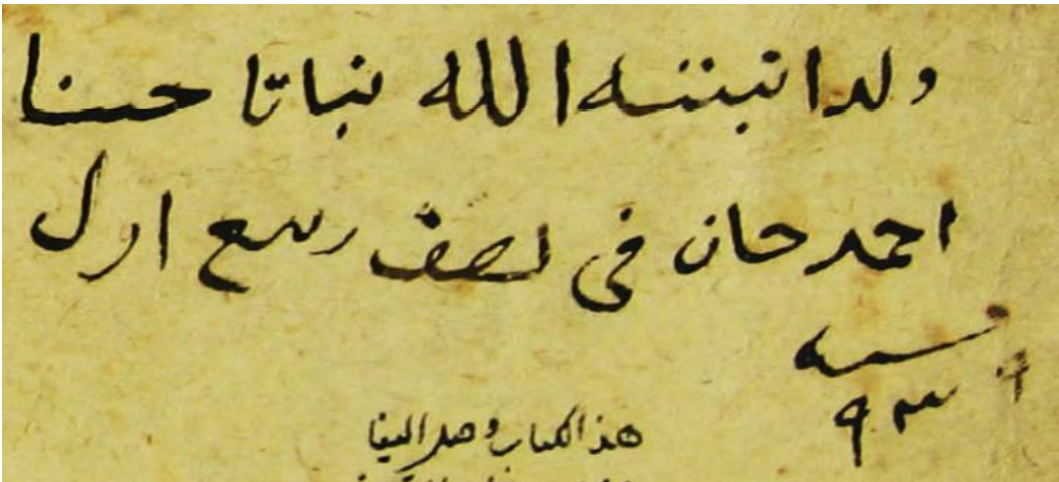 ولد انبته الله نباتا حسنا
احمد خان فى نصف ربيع اول
سنه
هذ الكتاب وصل الينا